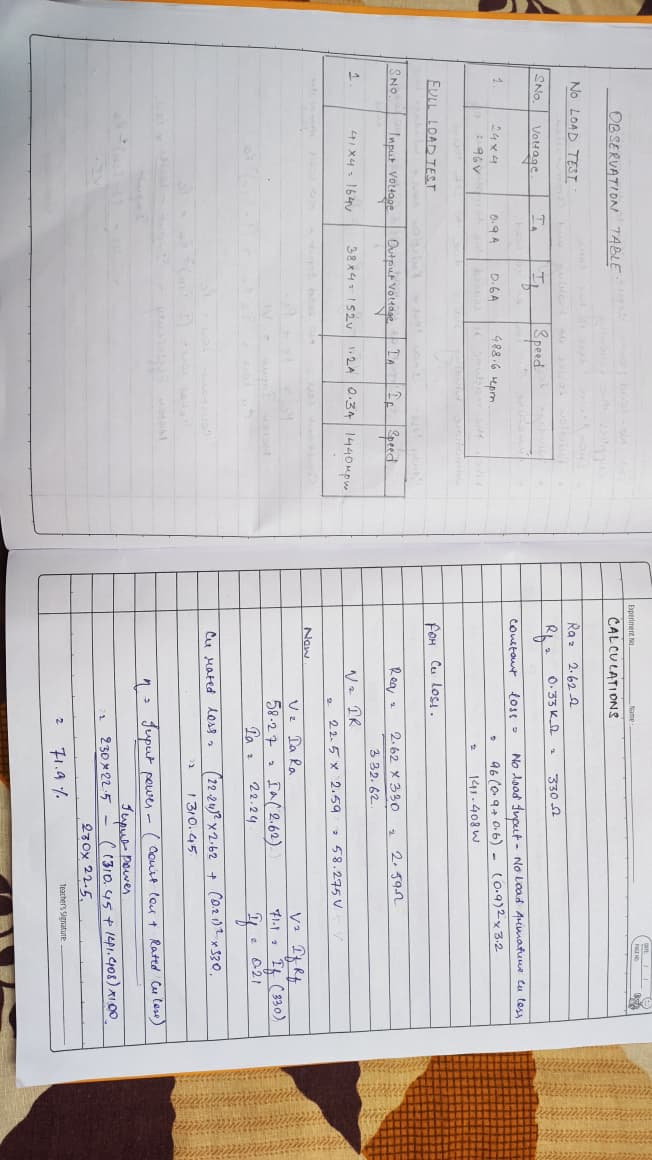 OBSERVATION TABLE
NO LOAD TEST
SNo. Voltage IA If Speed
1. 24×4 0.9A 0.6A 488.6 rpm
= 96V
FULL LOAD TEST
SNO. Input Voltage Output Voltage IA If Speed
1. 41×4 = 164V 38×4 = 152V 1.2A 0.3A 1440rpm
DATE: / /
PAGE NO.
Experiment No. Name
CALCULATIONS
Ra = 2.62 Ω
Rf = 0.33KΩ = 330Ω
Constant loss = No load Input - No Load Armature Cu loss
= 96(0.9+0.6) - (0.9)² × 3.2
= 141.408W
For Cu loss.
Req = 2.62 × 330 = 2.59Ω
332.62
V = IR
= 22.5 × 2.59 = 58.275V
Now
V = Ia Ra V = If Rf
58.27 = Ia(2.62) 71.1 = If (330)
Ia = 22.24 If = 0.21
Cu rated loss = (22.24)² × 2.62 + (0.21)² × 330.
= 1310.45
η = Input power - (Const loss + Rated Cu loss)
Input power
= 230×22.5 - (1310.45 + 141.408) ×100
230×22.5.
= 71.9 %
Teacher's Signature